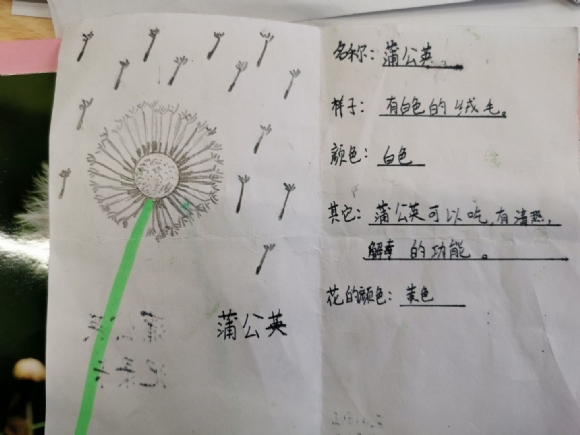 蒲公英
名称：蒲公英。
样子：有白色的绒毛。
颜色：白色
其它：蒲公英可以吃，有清热，
解毒的功能。
花的颜色：黄色